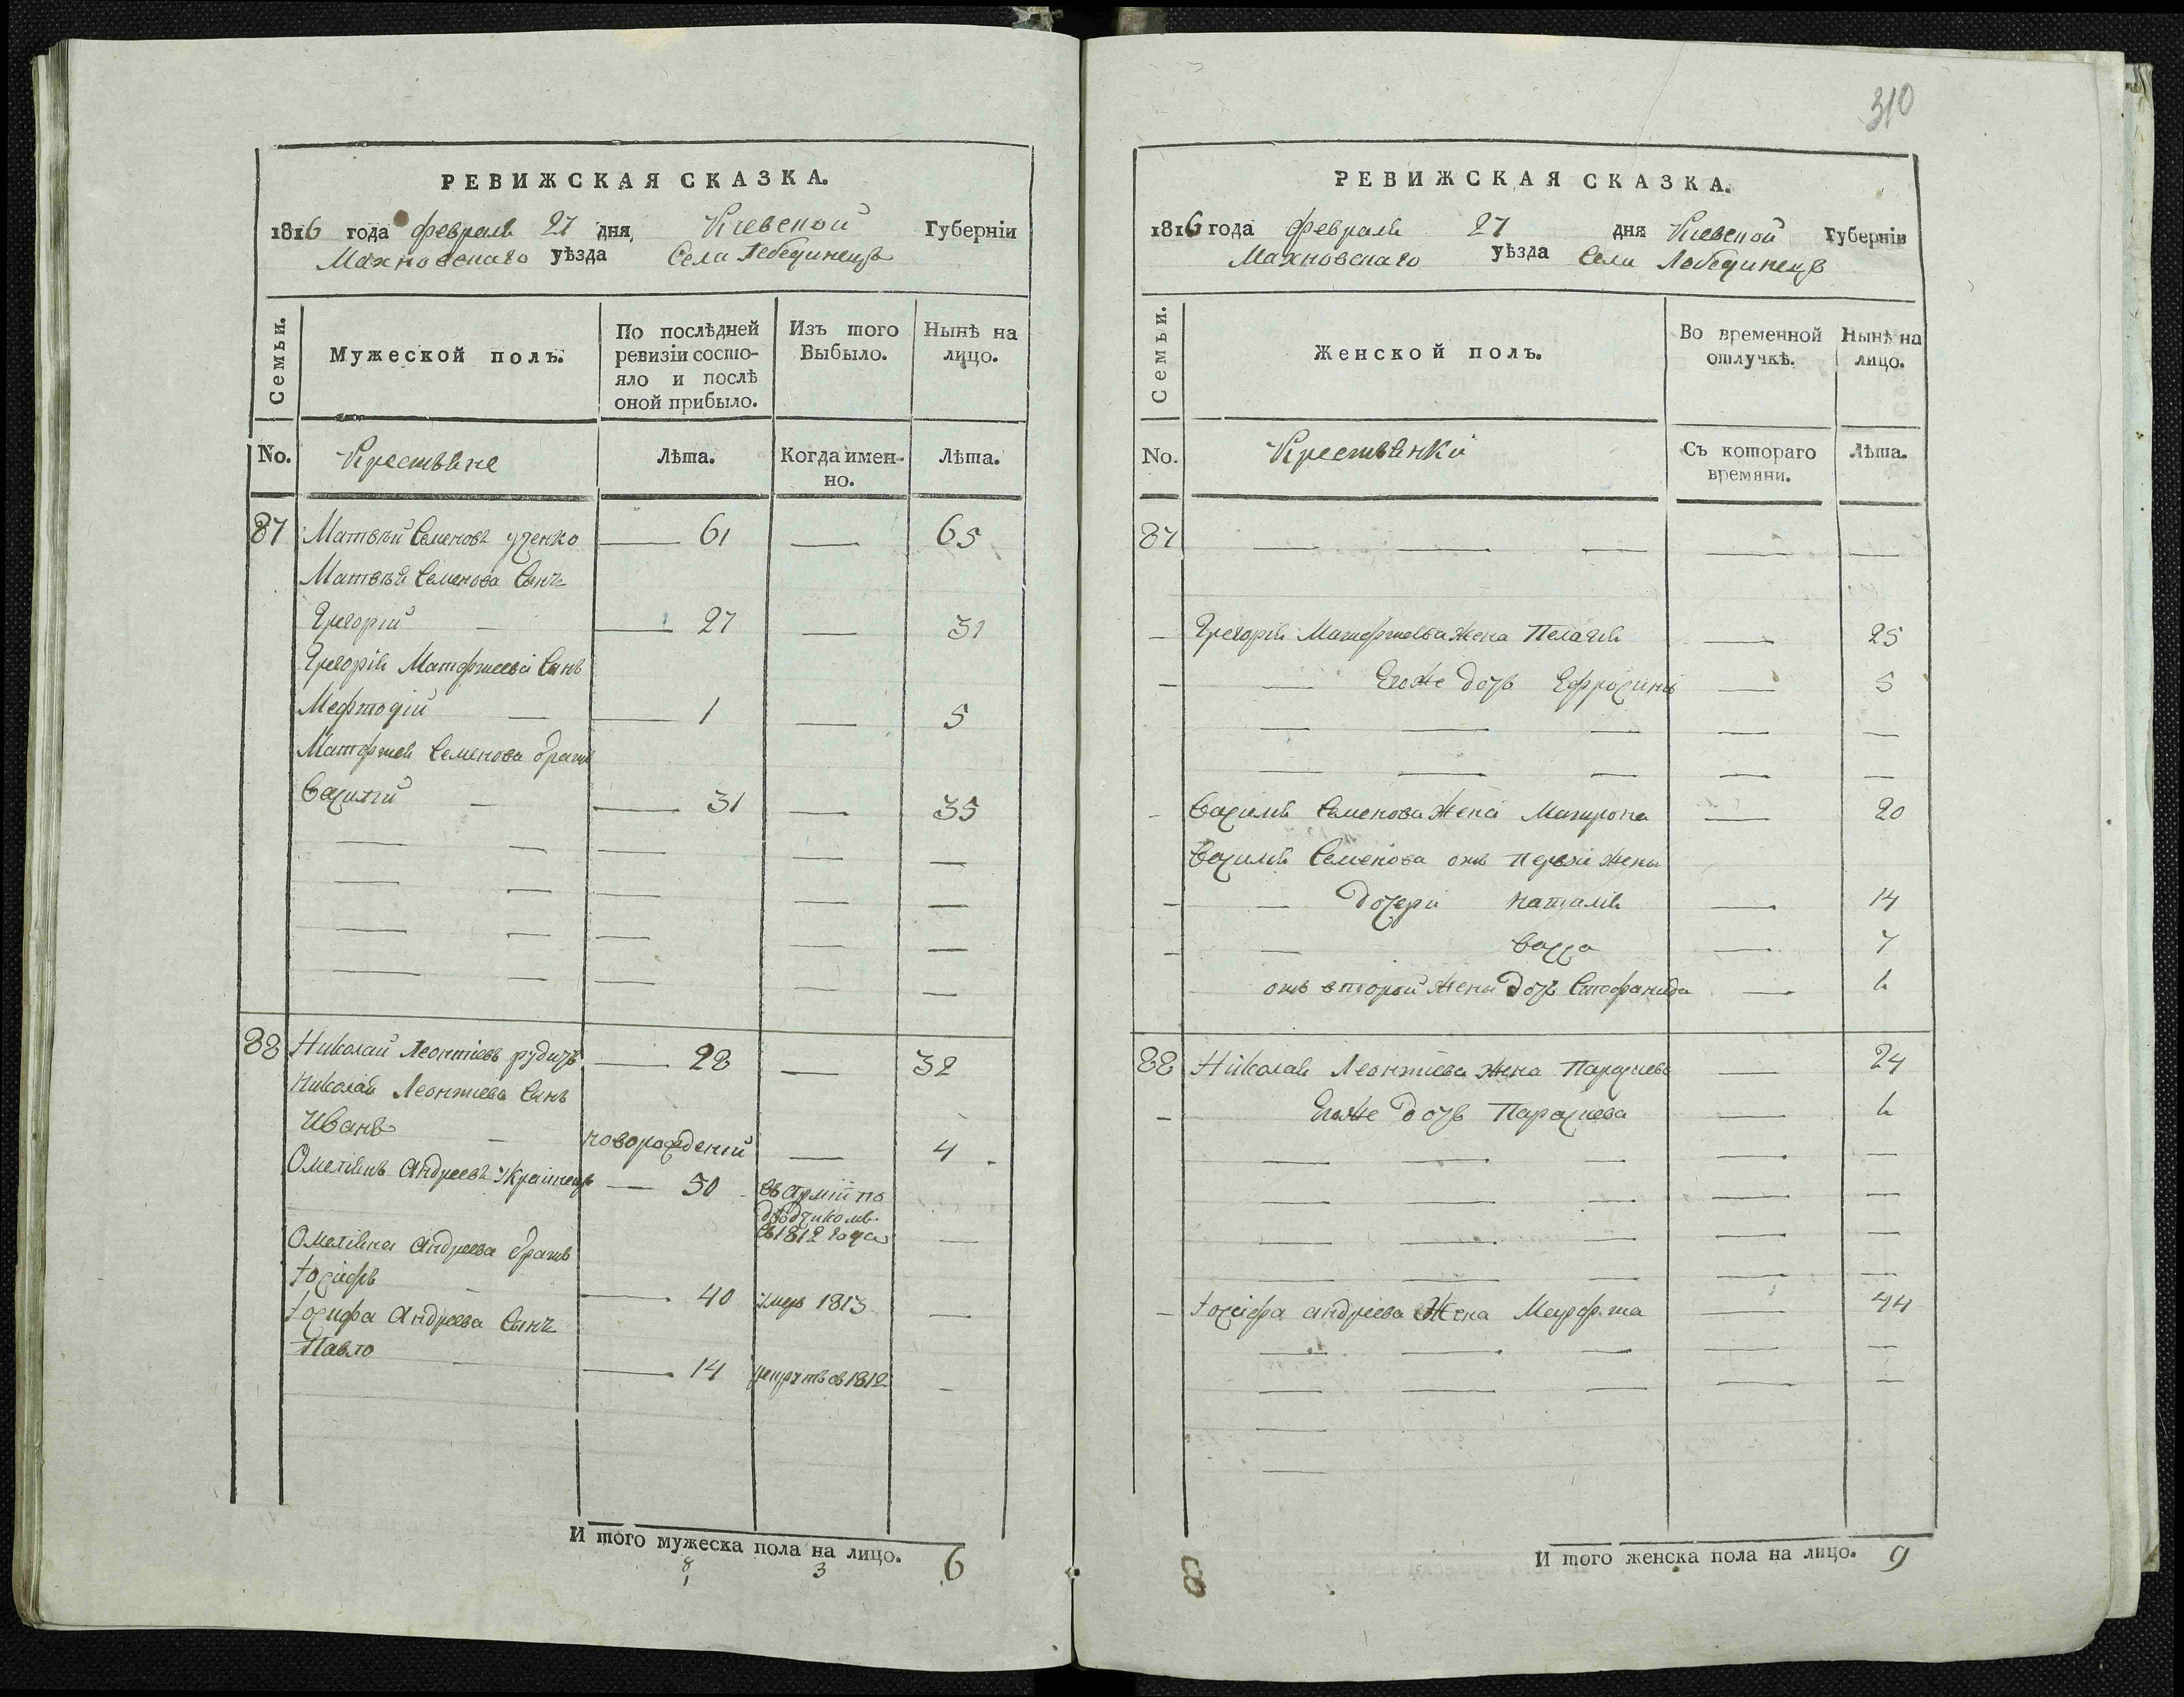 РЕВИЖСКАЯ СКАЗКА.
1816 года февраля 27 дня, Киевской Губерніи
Махновскаго уѣзда Села Лебединецъ
Семьи.
Мужеской полъ.
По послѣдней ревизіи состо-
яло и послѣ
оной прибыло.
Изъ того
Выбыло.
Нынѣ на
лицо.
No. Крестьяне Лѣта. Когда имен-
но. Лѣта.
87 Матвѣй Семеновъ — 61 — 65
Матвѣя Семенова Сынъ
Григорій — — 27 — 31
Григорія Матфтеева Сынъ
Мефтодій — — 1 — 5
Матфтея Семенова братъ
Василій — — 31 — 35
88 Николай Леонтіевъ рудичъ — 28 — 32
Николая Леонтиева Сынъ
Иванъ — новорожденій — 4
Омеліянъ Андреевъ Украинецъ — 50 въ арміи по
съ 1812 года —
Омеліяна Андреева братъ
Іосифъ — — 40 умеръ 1813 —
Іосифа Андреева Сынъ
Павло — — 14 рекрутъ въ 1812 —
И того мужеска пола на лицо. 6
8 3
1
310
РЕВИЖСКАЯ СКАЗКА.
1816 года февраля 27 дня Киевской Губерніи
Махновскаго уѣзда Села Лебединецъ
Семьи.
Женской полъ.
Во временной
отлучкѣ.
Нынѣ на
лицо.
No. Крестьянки Съ котораго
времяни. Лѣта.
87 — — — — —
— Григорія Матфтеева жена Пелагія — 25
— — Егоже дочь Ефросинія — 5
- Василія Семенова жена Матрона — 20
Василія Семенова отъ первой жены
— — дочери Наталія — 14
— — Васса — 7
отъ второй жены дочь Стефанида — 1
88 Николая Леонтиева жена Параскева — 24
— Егоже дочь Параскева — 1
— Іосифа андреева Жена Марфта — 44
И того женска пола на лицо. 9
8